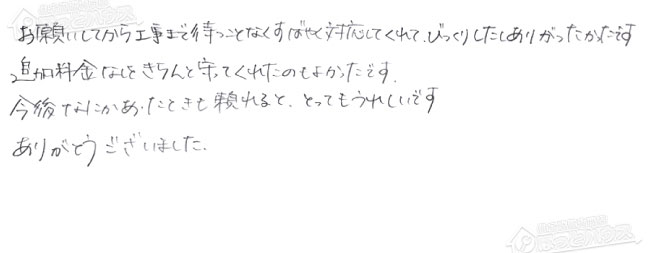 お願いしてから工事まで待つことなくすばやく対応してくれて、びっくりしたしありがたかったです
追加料金なしときちんと守ってくれたのもよかったです。
今後なにかあったときも頼れると、とってもうれしいです
ありがとうございました。